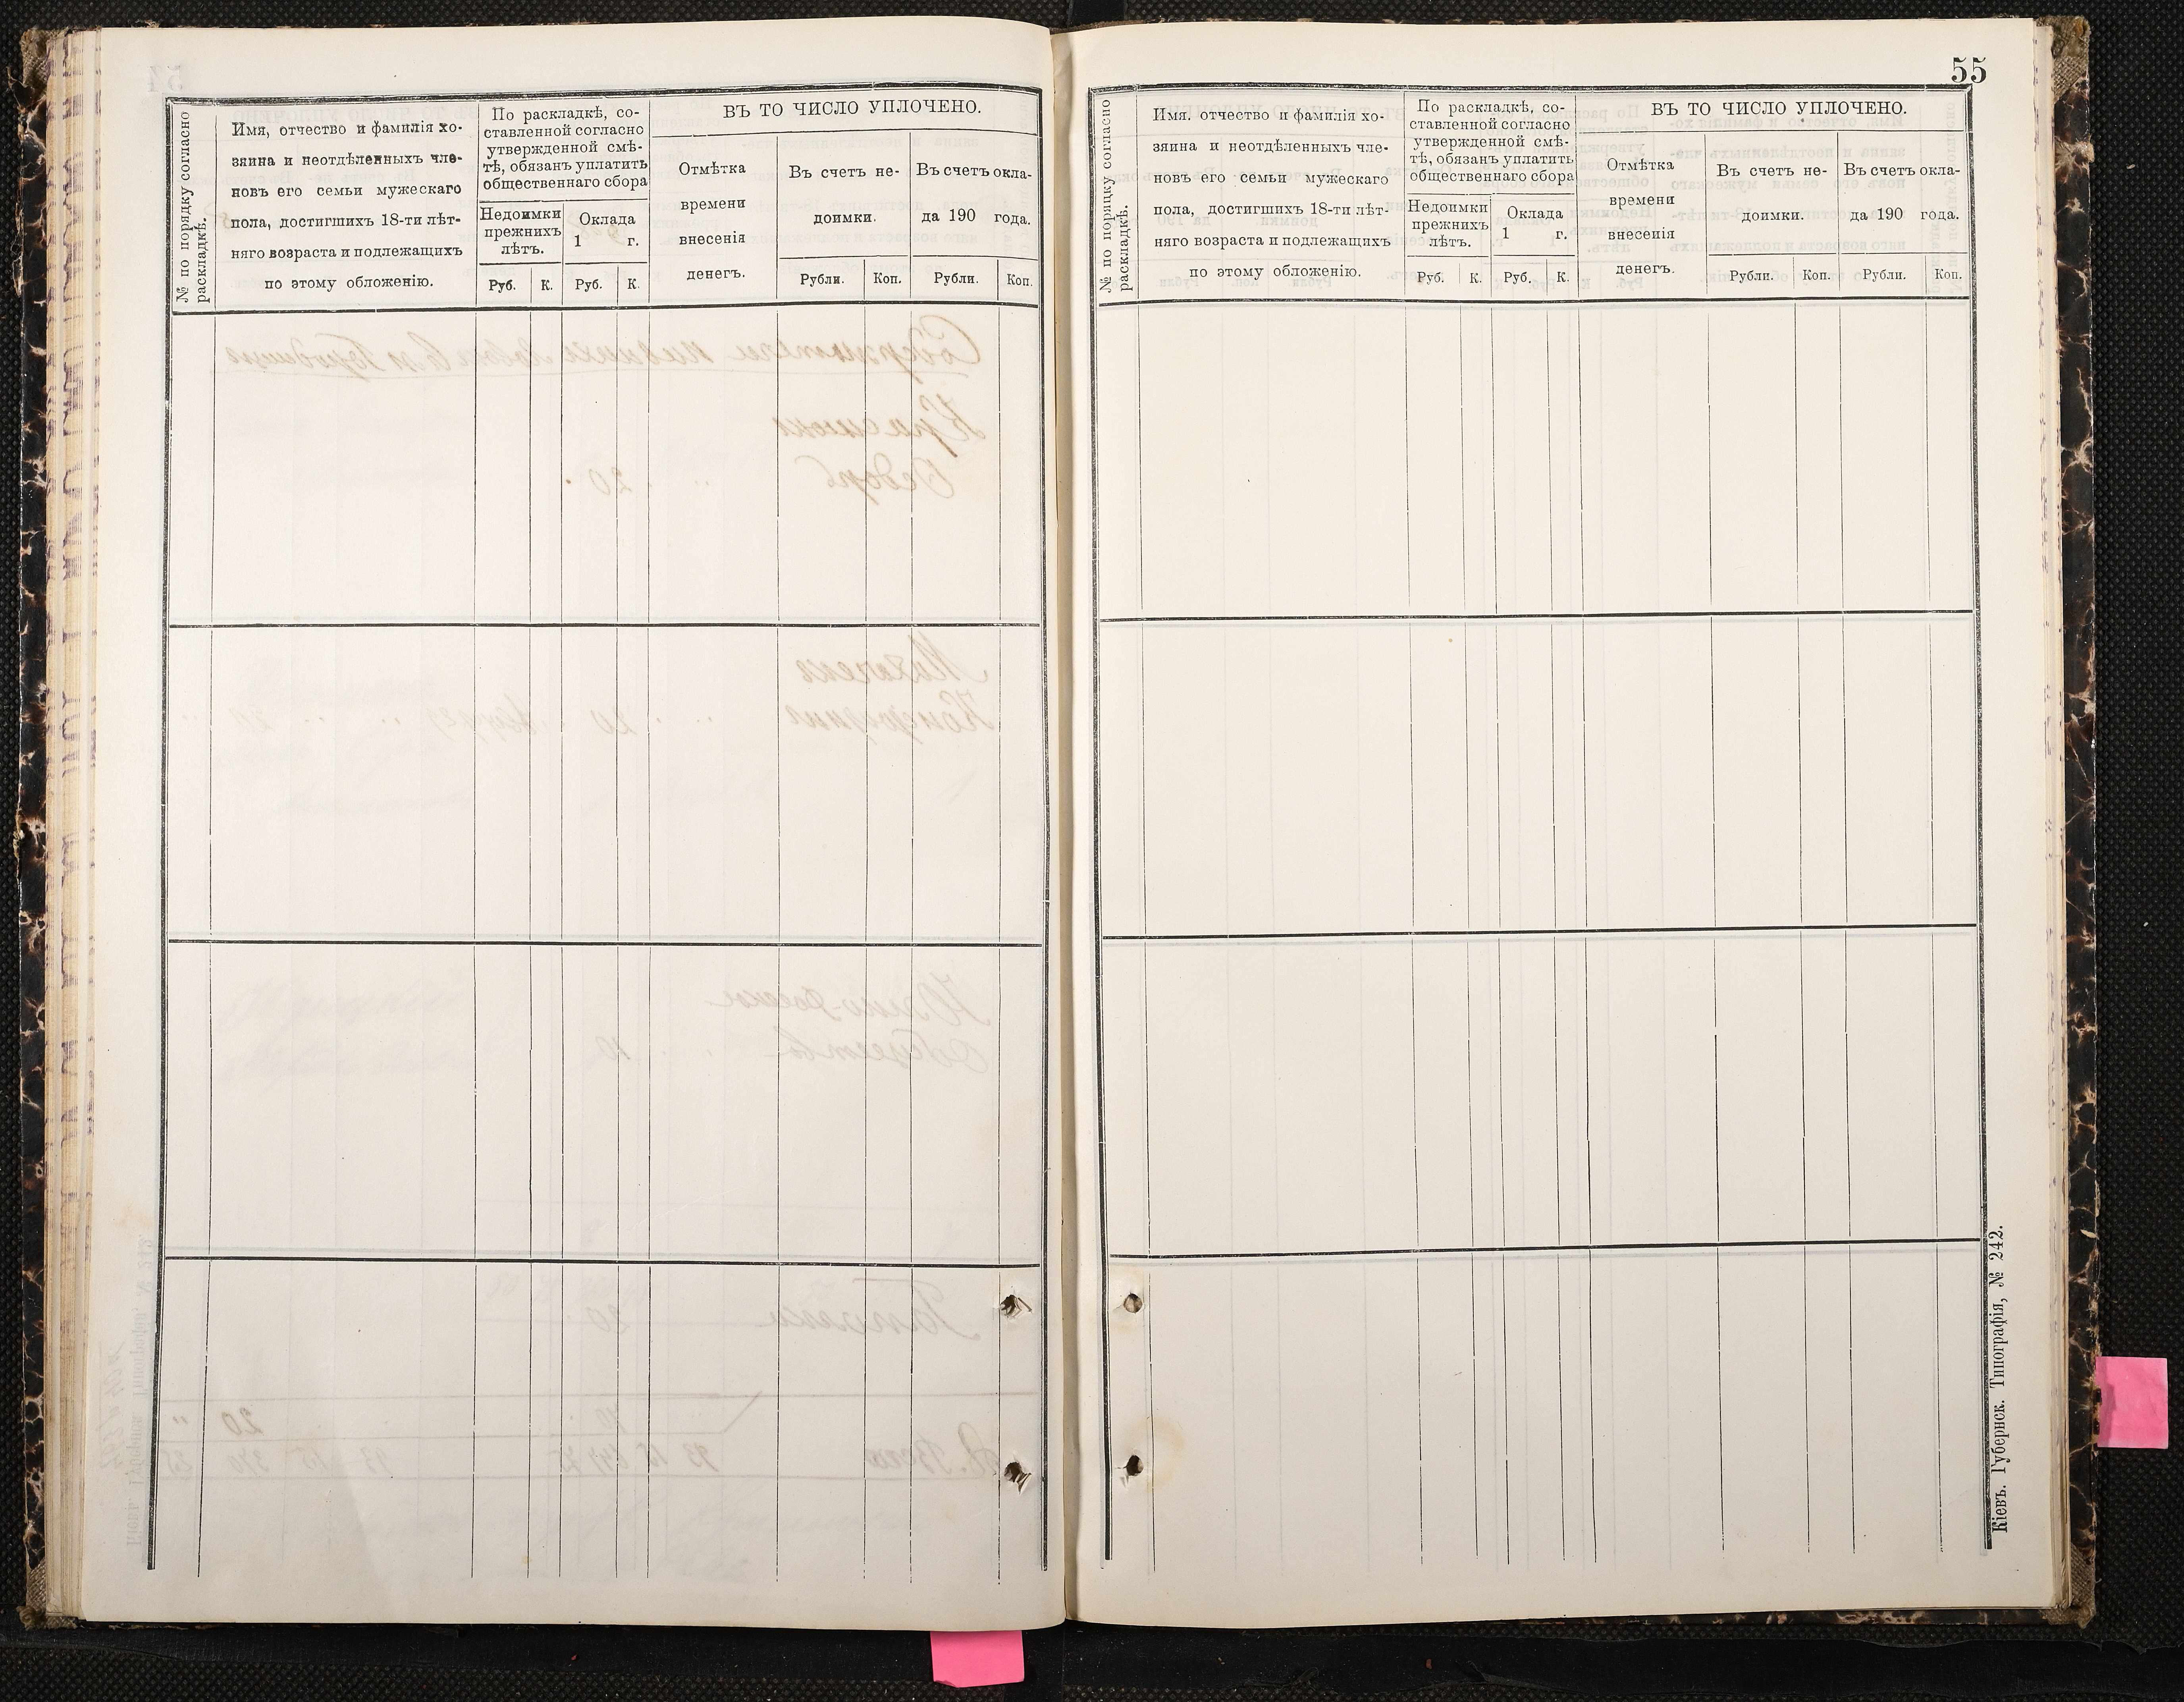 № по порядку согласно
раскладкѣ.
Имя, отчество и фамилія хо-
зяина и неотдѣленныхъ чле-
новъ его семьи мужескаго
пола, достигшихъ 18-ти лѣт-
няго возраста и подлежащихъ
по этому обложенію.
По раскладкѣ, со-
ставленной согласно
утвержденной смѣ-
тѣ, обязанъ уплатить
общественнаго сбора
Недоимки
прежнихъ
лѣтъ.
Оклада
1 г.
Руб. К. Руб. К.
ВЪ ТО ЧИСЛО УПЛОЧЕНО.
Отмѣтка
времени
внесенія
денегъ.
Въ счетъ не-
доимки.
Въ счетъ окла-
да 190 года.
Рубли. Коп. Рубли. Коп.
55
№ по порядку согласно
раскладкѣ.
Имя, отчество и фамилія хо-
зяина и неотдѣленныхъ чле-
новъ его семьи мужескаго
пола, достигшихъ 18-ти лѣт-
няго возраста и подлежащихъ
по этому обложенію.
По раскладкѣ, со-
ставленной согласно
утвержденной смѣ-
тѣ, обязанъ уплатить
общественнаго сбора
Недоимки
прежнихъ
лѣтъ.
Оклада
1 г.
Руб. К. Руб. К.
ВЪ ТО ЧИСЛО УПЛОЧЕНО.
Отмѣтка
времени
внесенія
денегъ.
Въ счетъ не-
доимки.
Въ счетъ окла-
да 190 года.
Рубли. Коп. Рубли. Коп.
Кіевъ. Губернск. Типографія, № 242.